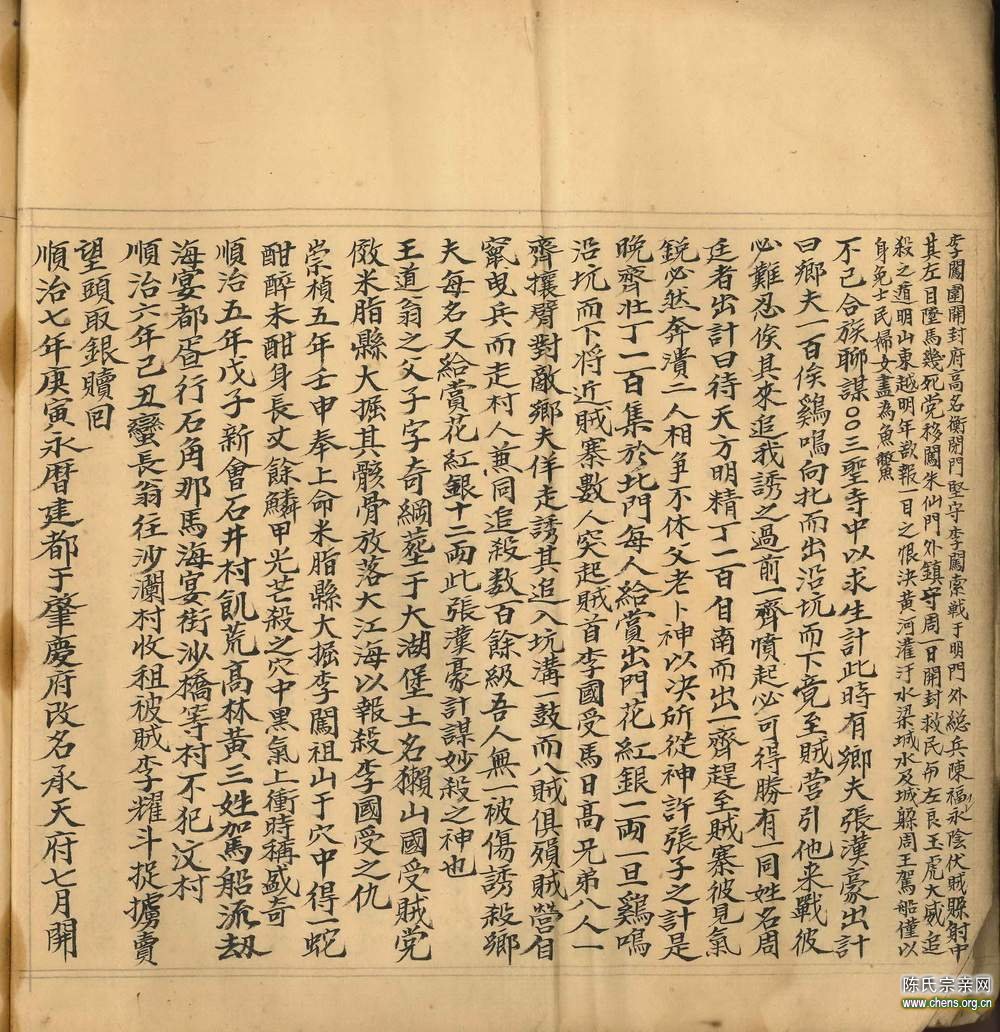 李闖圍開封府高名衡閉門堅守李闖索戰于明門外総兵陳福永陰伏賊睬射中
其左目墜馬幾死党移闖朱仙門外鎮守周一日開封救民而左良玉虎大威追
殺之遁明山東越明年欲報一目之恨決黃河灌汴水梁城水及城躲周王駕船僅以
身免士民婦女盡為魚鱉
不已合族聊謀〇〇三聖寺中以求生計此時有鄉夫張漢豪出計
曰鄉夫一百俟鷄鳴向北而出沿坑而下竟至賊营引他来戰彼
必難忍俟其來追我誘之過前一齊憤起必可得勝有一同姓名周
廷者出計曰待天方明精丁一百自南而出一齊趕至賊寨彼見氣
銳必然奔潰二人相争不休父老卜神以决所從神許張子之計是
晚齊壮丁一百集於北門每人給賞出門花紅銀一両一旦鷄鳴
沿坑而下将近賊寨數人突起賊首李國受馬日高兄弟八人一
齊攘臂對敵鄉夫佯走誘其追入坑溝一鼓而八賊俱殞賊营自
竄曳兵而走村人兼同追殺数百餘級吾人無一被傷誘殺鄉
夫每名又給賞花紅銀十二両此張漢豪計謀妙殺之神也
王道翁之父子字奇綱塟于大湖堡土名獺山國受賊党
傚米脂縣大掘其骸骨放落大江海以報殺李國受之仇
崇楨五年壬申奉上命米脂縣大掘李闖祖山于穴中得一蛇
酣醉未酣身長丈餘鱗甲光芒殺之穴中黑氣上衝時稱盛奇
順治五年戊子新會石井村飢荒高林黃三姓加馬船流刼
海宴都疍行石角那馬海宴街沙橋等村不犯汶村
順治六年己丑蠻長翁往沙瀾村收租被賊李耀斗捉擄賣
望頭取銀贖回
順治七年庚寅永曆建都于肇慶府改名承天府七月開
陈氏宗亲网
www.chens.org.cn